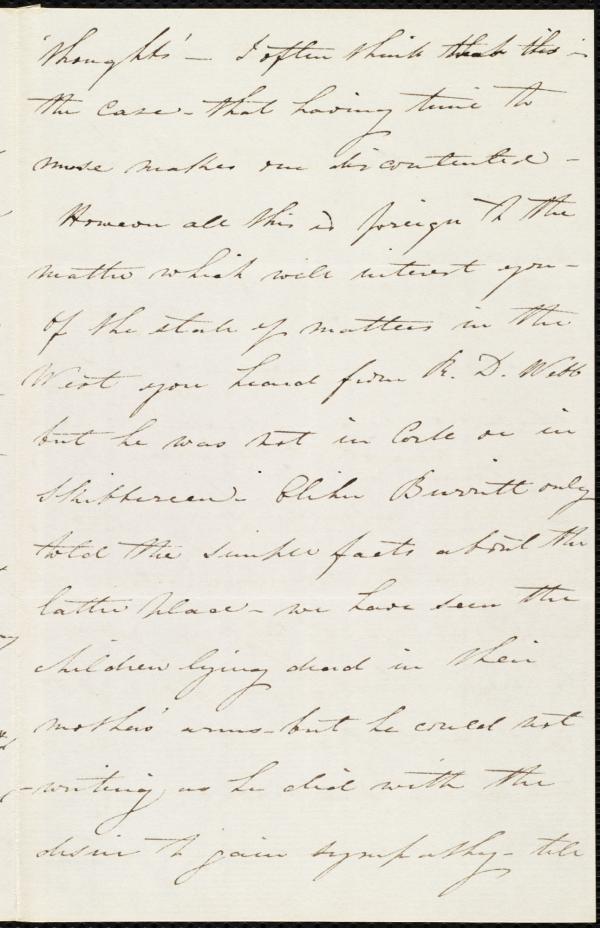 'thoughts' — I often think that this is
the case - that having time to
muse makes one discontented -
However all this is foreign to the
matter which will interest you -
Of the state of matters in the
West you heard from R. D. Webb
but he was not in Cork or in
Skibbereen. Elihu Burritt only
told the simple facts about the
latter place - we have seen the
children lying dead in their
mothers' arms - but he could not
- writing, as he did with the
desire to gain sympathy - tell